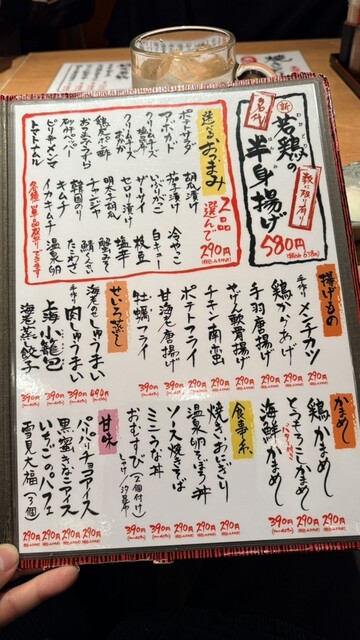 名代
新
若鶏の
半身揚げ
数に限り有り
580円
選べるおつまみ
2品
選んで
290円
ポテトサラダ
アボカド
クリームチーズ
鶏皮ポン酢
砂肝ピリ辛
ピリ辛メンマ
トマトナムル
胡瓜漬け
茄子漬け
いぶりがっこ
ザーサイ
セロリ漬け
明太子胡瓜
チャンジャ
韓国のり
キムチ
イカキムチ
冷やっこ
白キュー
枝豆
塩辛
蟹みそ
鯖くんせい
たこわさ
温泉卵
揚げもの
手作り メンチカツ
鶏からあげ
手羽唐揚げ
やげん軟骨揚げ
チキン南蛮
ポテトフライ
甘海老唐揚げ
牡蠣フライ
290円
290円
290円
290円
290円
290円
390円
390円
せいろ蒸し
海老のしゅうまい
手作り 肉しゅうまい
上海小籠包
海老蒸餃子
490円
390円
390円
390円
かまめし
鶏かまめし
とうもろこしかまめし
バター付き
海鮮かまめし
290円
290円
390円
食事系
焼きおにぎり
温泉卵そぼろ丼
ソース焼きそば
ミニうな丼
おむすび(2個付け)
290円
290円
290円
390円
390円
甘味
パリパリチョコアイス
黒蜜きなこアイス
いちごのパフェ
雪見大福(3個)
290円
290円
290円
290円